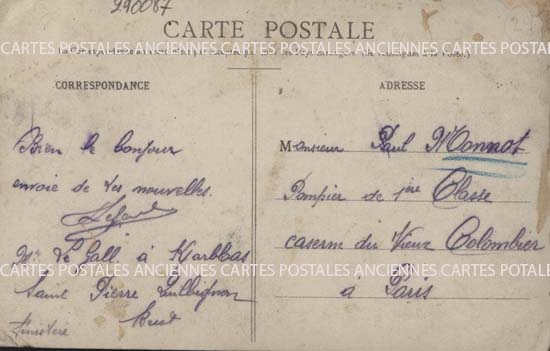 290087
CARTE POSTALE
CARTES POSTALES ANCIENNES CARTES POSTALES ANCIENNES CARTES POSTALES
CORRESPONDANCE
ADRESSE
Bien le bonjour
envoie de tes nouvelles.
Mr Le Gall à Kerbbas
Saint Pierre Quilbignon
Brest
Finistere
Monsieur Paul Monnot
Pompier de 1ère Classe
caserne du Vieux Colombier
à Paris
CARTES POSTALES ANCIENNES CARTES POSTALES ANCIENNES CARTES POSTALES